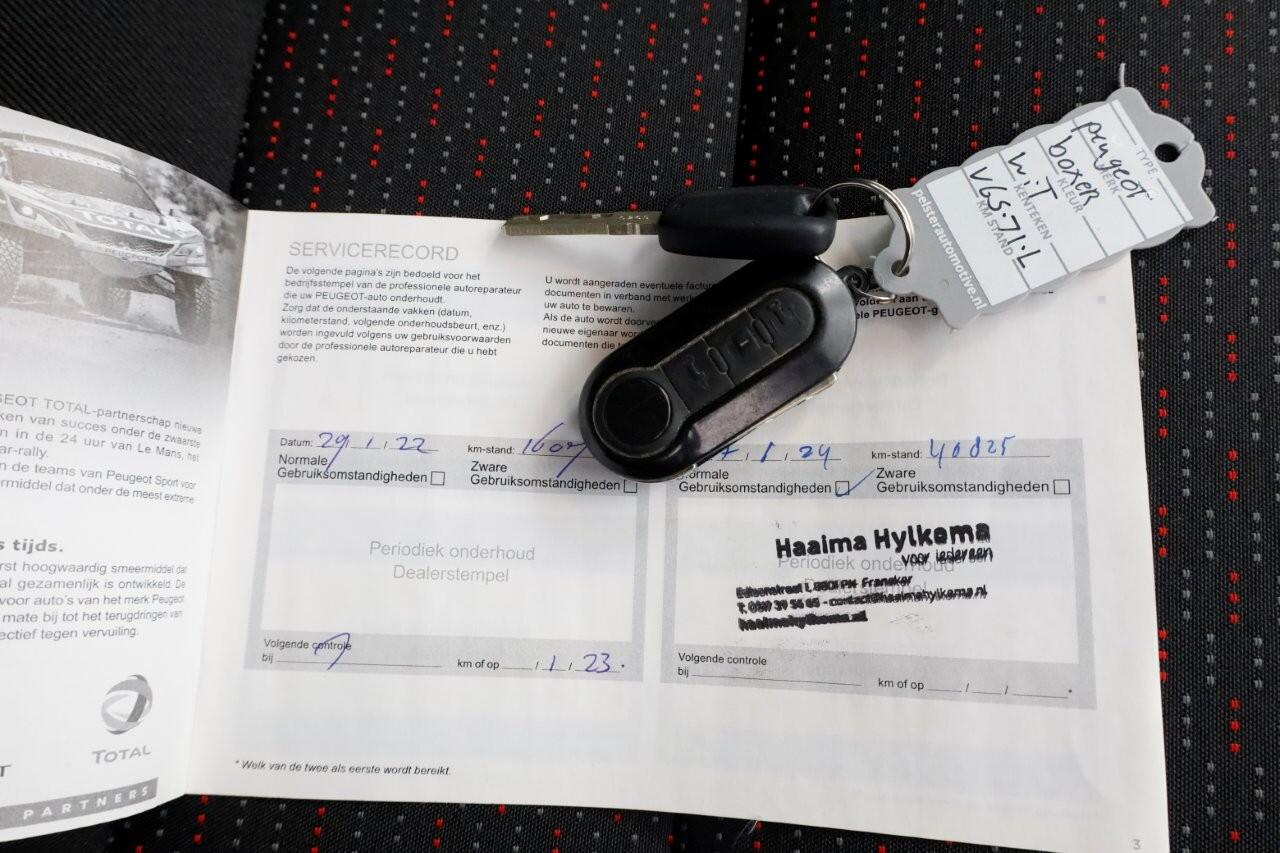 TOTAL
PEUGEOT
GEOT TOTAL-partnerschap nieuwe
ken van succes onder de zwaarste
n in de 24 uur van Le Mans, het
ar-rally.
n de teams van Peugeot Sport voor
rmiddel dat onder de meest extreme
s tijds.
rst hoogwaardig smeermiddel dat
al gezamenlijk is ontwikkeld. De
voor auto's van het merk Peugeot
mate bij tot het terugdringen van
ectief tegen vervuiling.
TOTAL
T
PARTNERS
SERVICERECORD
De volgende pagina's zijn bedoeld voor het
bedrijfsstempel van de professionele autoreparateur
die uw PEUGEOT-auto onderhoudt.
Zorg dat de onderstaande vakken (datum,
kilometerstand, volgende onderhoudsbeurt, enz.)
worden ingevuld volgens uw gebruiksvoorwaarden
door de professionele autoreparateur die u hebt
gekozen.
U wordt aangeraden eventuele factur
documenten in verband met werk
uw auto te bewaren.
Als de auto wordt doorve
nieuwe eigenaar wor
documenten die
ele PEUGEOT-g
TYPE
peugeot
MERK
boxer
KLEUR
wiT
KENTEKEN
VGS-71-L
KM STAND
pelsterautomotive.nl
Datum: 29/1/22 km-stand: 1607
Normale
Gebruiksomstandigheden
Zware
Gebruiksomstandigheden
Periodiek onderhoud
Dealerstempel
Volgende controle
bij km of op / 1 / 23 *
/ 24 km-stand: 40825
ormale
Gebruiksomstandigheden
Zware
Gebruiksomstandigheden
Periodiek onderhoud
Haaima Hylkema
voor iedereen
haaimahylkema.nl
Volgende controle
bij km of op / / *
* Welk van de twee als eerste wordt bereikt.
3